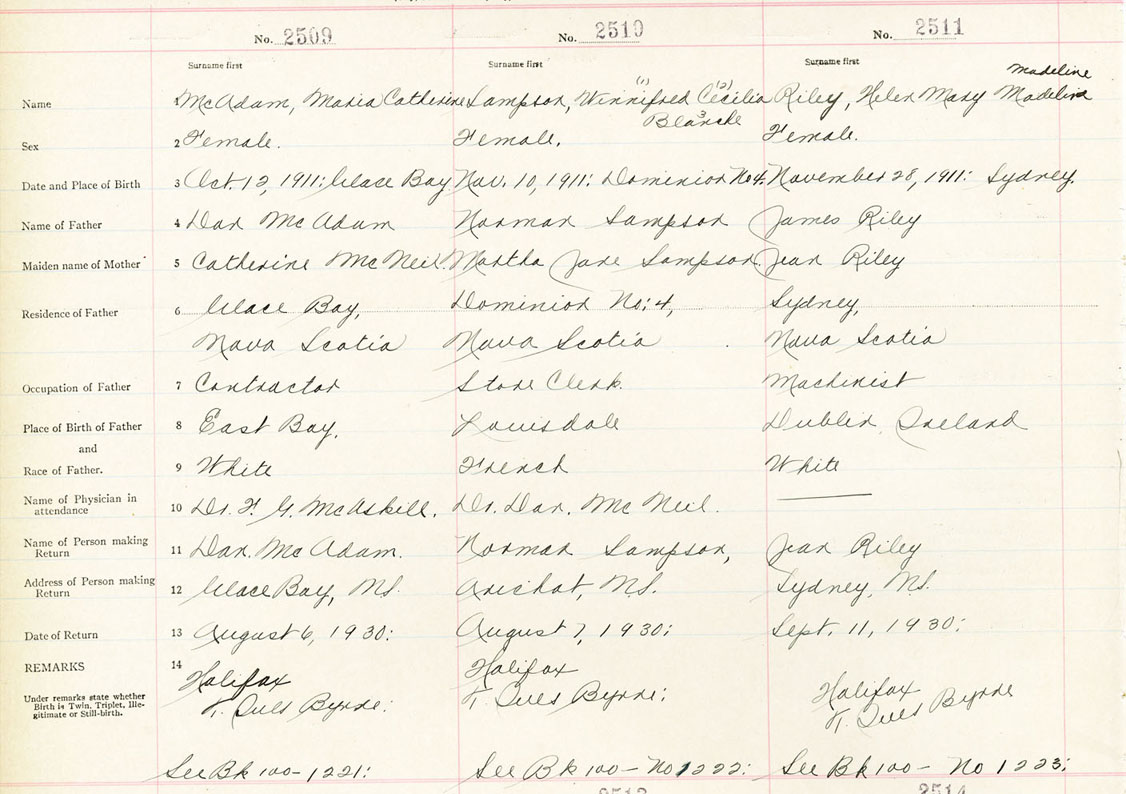 No. 2509 No. 2510 No. 2511
Surname first Surname first Surname first
Madeline
Name 1 McAdam, Maria Catherine Sampson, Winnifred (1) Cecilia (2) Riley, Helen Mary Madeline
Blanche 3
Sex 2 Female. Female. Female.
Date and Place of Birth 3 Oct. 12, 1911: Glace Bay Nov. 10, 1911: Dominion No 4. November 28, 1911: Sydney.
Name of Father 4 Dan McAdam Norman Sampson James Riley
Maiden name of Mother 5 Catherine McNeil. Martha Jane Sampson. Jean Riley
Residence of Father 6 Glace Bay, Dominion No: 4, Sydney,
Nova Scotia Nova Scotia Nova Scotia
Occupation of Father 7 Contractor Store Clerk. Machinist
Place of Birth of Father 8 East Bay. Louisdale Dublin, Ireland
and
Race of Father. 9 White French White
Name of Physician in attendance 10 Dr. F. G. McAskill. Dr. Dan. McNeil.
Name of Person making Return 11 Dan. McAdam. Norman Sampson, Jean Riley
Address of Person making Return 12 Glace Bay, N.S. Arichat, N.S. Sydney, N.S.
Date of Return 13 August 6, 1930: August 7, 1930: Sept. 11, 1930:
REMARKS 14 Halifax Halifax Halifax
Under remarks state whether Birth is Twin, Triplet, Illegitimate or Still-birth. Byrne: Byrne: Byrne
See Bk 100 - 1221: See Bk 100 - No 1222: See Bk 100 - No 1223:
2514